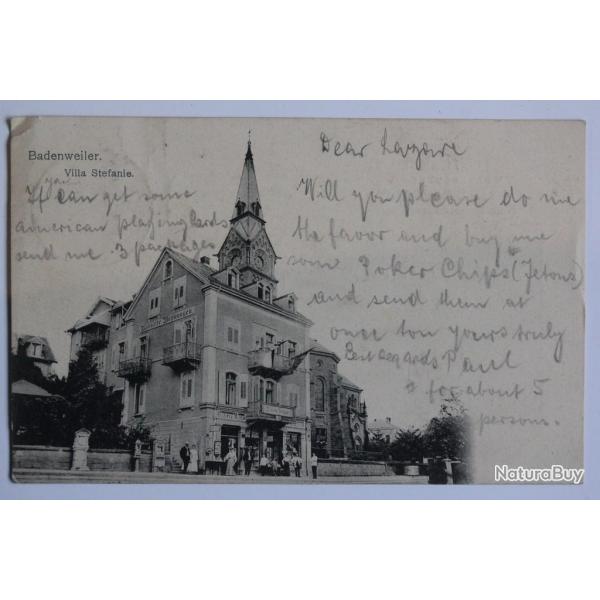 Badenweiler.
Villa Stefanie.
Dear Lazare
Will you please do me
the favor and buy me
som Poker Chips (Jetons)
and send them at
once to yours truly
Best regards Paul
* for about 5
persons.
If you can get some
american playing cards
send me 3 packages
NaturaBuy